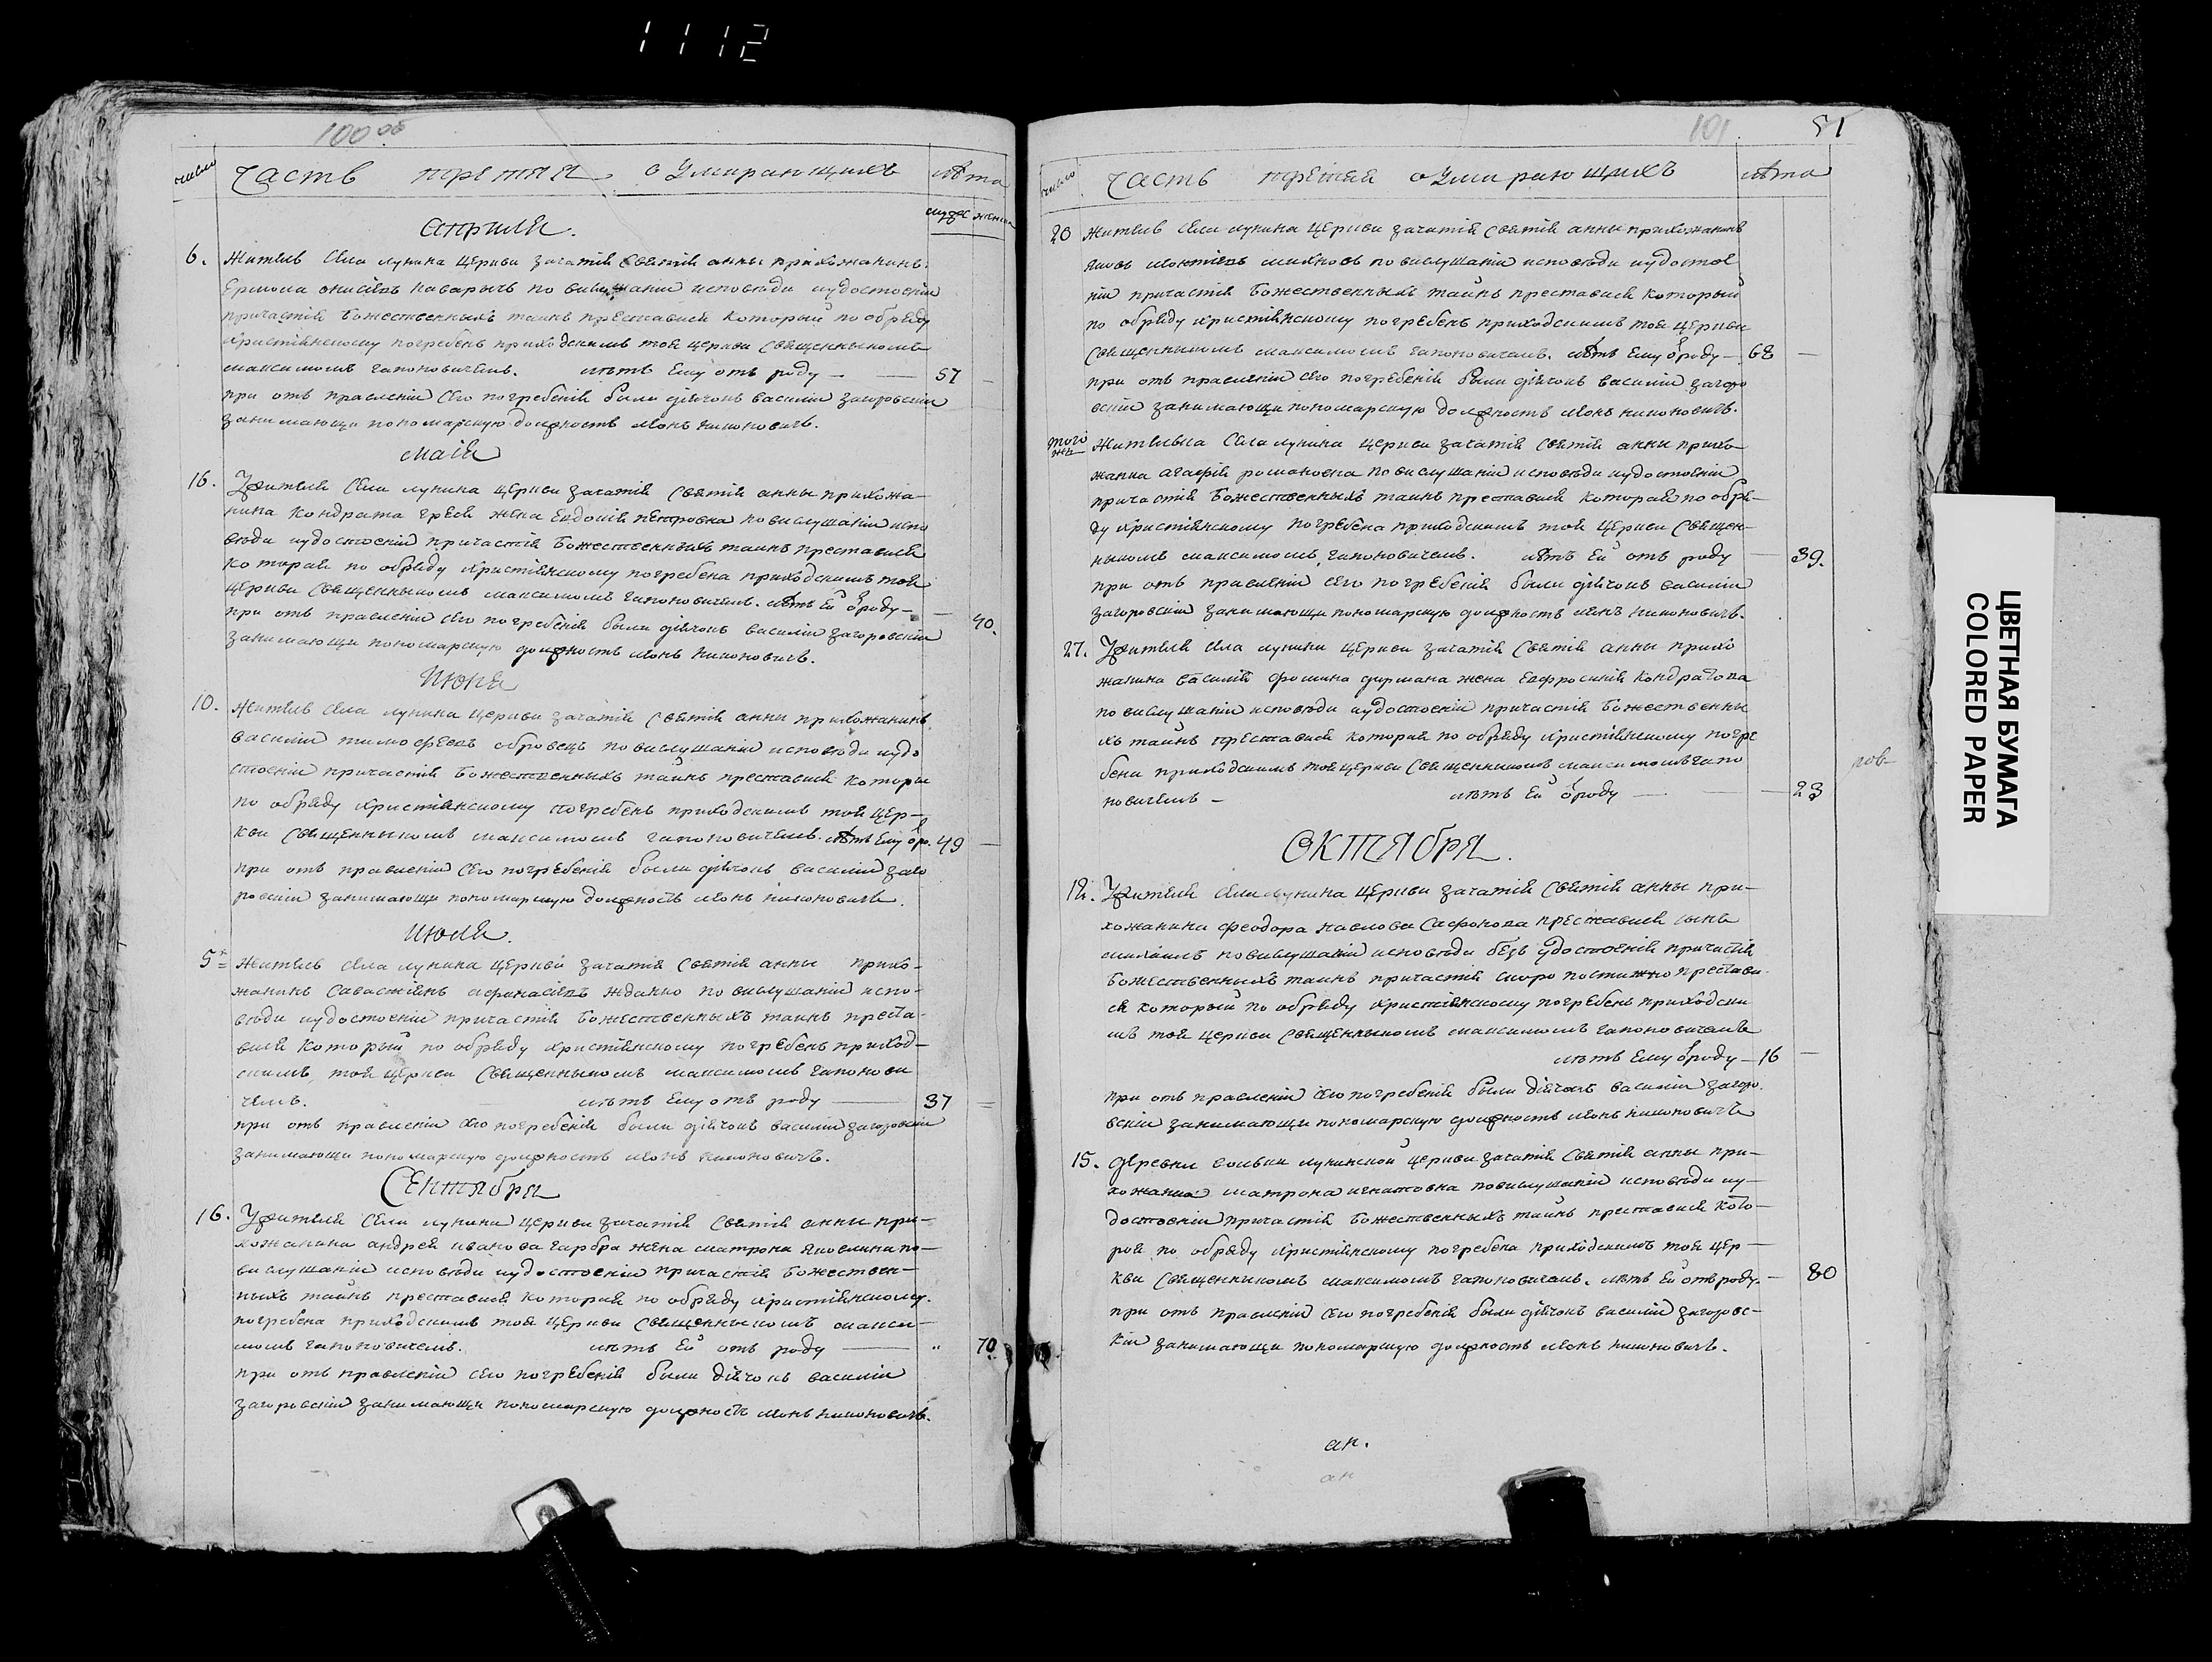 1112
100 об
число
Часть третяя о Умирающихъ
лѣта
мужес женск
априля.
6. Житель села лунина церкви зачатія Святія анны прихожанинъ
Ермола Онисіевъ Каварычъ по вислушаніи исповѣди иудостоеніи
причастія Божественныхъ таинъ преставися который по обряду
християнскому погребенъ приходскимъ тоя церкви Священныкомъ
максимомъ гапоновичемъ. лѣтъ Ему отъ роду — 57
при отъ правленіи Сего погребенія были діячокъ василіи загоровскіи
занимающи пономарскую должность леонъ никоновичъ.
маія
16. Жителя Села лунина церкви зачатія Святія анны прихожа-
нина Кондрата Греся жена Евдокія петровна по вислушаніи испо
вѣди иудостоеніи причастія Божественныхъ таинъ преставися
которая по обряду християнскому погребена приходскимъ тоя
церкви Священныкомъ максимомъ гапоновичемъ. лѣтъ Ей о роду — 40.
при отъ правленіи Сего погребенія были діячокъ василіи загоровскіи
занимающи пономарскую должность леонъ никоновичъ.
Июня
10. Житель села лунина церкви зачатія Святія анны прихожанинъ
василіи тимофеевъ обровецъ по вислушаніи исповѣди иудо
стоеніи причастія Божественныхъ таинъ преставися которы
по обряду християнскому погребенъ приходскимъ тоя цер-
кви Священныкомъ максимомъ гапоновичемъ. лѣтъ Ему о ро. 49 —
при отъ правленіи Сего погребенія были діячокъ василіи заго
ровскіи занимающи пономарскую должность леонъ никоновичъ.
Июля.
5 Житель села лунина церкви зачатія Святія анны прихо-
жанинъ Савастіянъ афонасіевъ жданко по вислушаніи испо-
вѣди иудостоеніи причастія Божественныхъ таинъ преста-
вися Который по обряду християнскому погребенъ приход-
скимъ тоя церкви Священныкомъ максимомъ гапонови
чемъ. лѣтъ Ему отъ роду — 37
при отъ правленіи Сего погребенія были діячокъ василіи загоровскіи
занимающи пономарскую должность леонъ никоновичъ.
Сентября
16. Жителя Села лунина церкви зачатія Святія анны при-
хожанина андрея иванова жена матрона яковлина по-
вислушаніи исповѣди иудостоеніи причастія Божествен-
ныхъ таинъ преставися которая по обряду християнскому
погребена приходскимъ тоя церкви Священныкомъ макси-
момъ гапоновичемъ. лѣтъ Ей отъ роду — " 70.
при отъ правленіи Сего погребенія были діячокъ василіи
загоровскіи занимающи пономарскую должность леонъ никоновичъ.
101 51
число
Часть третяя о Умирающихъ
лѣта
20 Житель села лунина церкви зачатія Святія анны прихожанинъ
яковъ леонтіевъ михновъ по вислушаніи исповѣди иудостое
ніи причастія Божественныхъ таинъ преставися который
по обряду християнскому погребенъ приходскимъ тоя церкви
Священныкомъ максимомъ гапоновичемъ. лѣтъ Ему о роду — 68 —
при отъ правленіи Сего погребенія были діячокъ василіи загоро
вскіи занимающи пономарскую должность леонъ никоновичъ.
того жъ Жителька Села лунина церкви зачатія Святія анны прихо
жанка агафія романовна по вислушаніи исповѣди иудостоеніи
причастія Божественныхъ таинъ преставися Которая по обря-
ду християнскому погребена приходскимъ тоя церкви Священ-
ныкомъ максимомъ гапоновичемъ. лѣтъ Ей отъ роду — 39.
при отъ правленіи Сего погребенія были діячокъ василіи
загоровскіи занимающи пономарскую должность леонъ никоновичъ.
27. Жителя села лунина церкви зачатія Святія анны прихо
жанина василія фомина дурмана жена Евфросинія Кондратова
по вислушаніи исповѣди иудостоеніи причастія Божественны
хъ таинъ преставися которая по обряду християнскому погре
бена приходскимъ тоя церкви Священникомъ максимомъ гапо
новичемъ — лѣтъ Ей о роду — 23
ОКТЯбРЯ.
12. Жителя села лунина церкви зачатія Святія анны при-
хожанина феодора павлова Сафонова преставися сынъ
михаилъ по вислушаніи исповѣди безъ удостоенія причастія
Божественныхъ таинъ причастія скоро постижно престави
ся который по обряду християнскому погребенъ приходски
мъ тоя церкви Священныкомъ максимомъ гапоновичемъ
лѣтъ Ему о роду — 16 —
при отъ правленіи Сего погребенія были діячокъ василіи загоро
вскіи занимающи пономарскую должность леонъ никоновичъ
15. деревни лунинской церкви зачатія Святія анны при-
хожанка матрона игнатовна по вислушаніи исповѣди иу-
достоеніи причастія Божественныхъ таинъ преставися кото-
рая по обряду християнскому погребена приходскимъ тоя цер-
кви Священникомъ максимомъ гапоновичемъ. лѣтъ Ей отъ роду. — 80
при отъ правленіи Сего погребенія были діячокъ василіи загоровс-
кіи занимающи пономарскую должность леонъ никоновичъ.
ап.
ЦВЕТНАЯ БУМАГА
COLORED PAPER